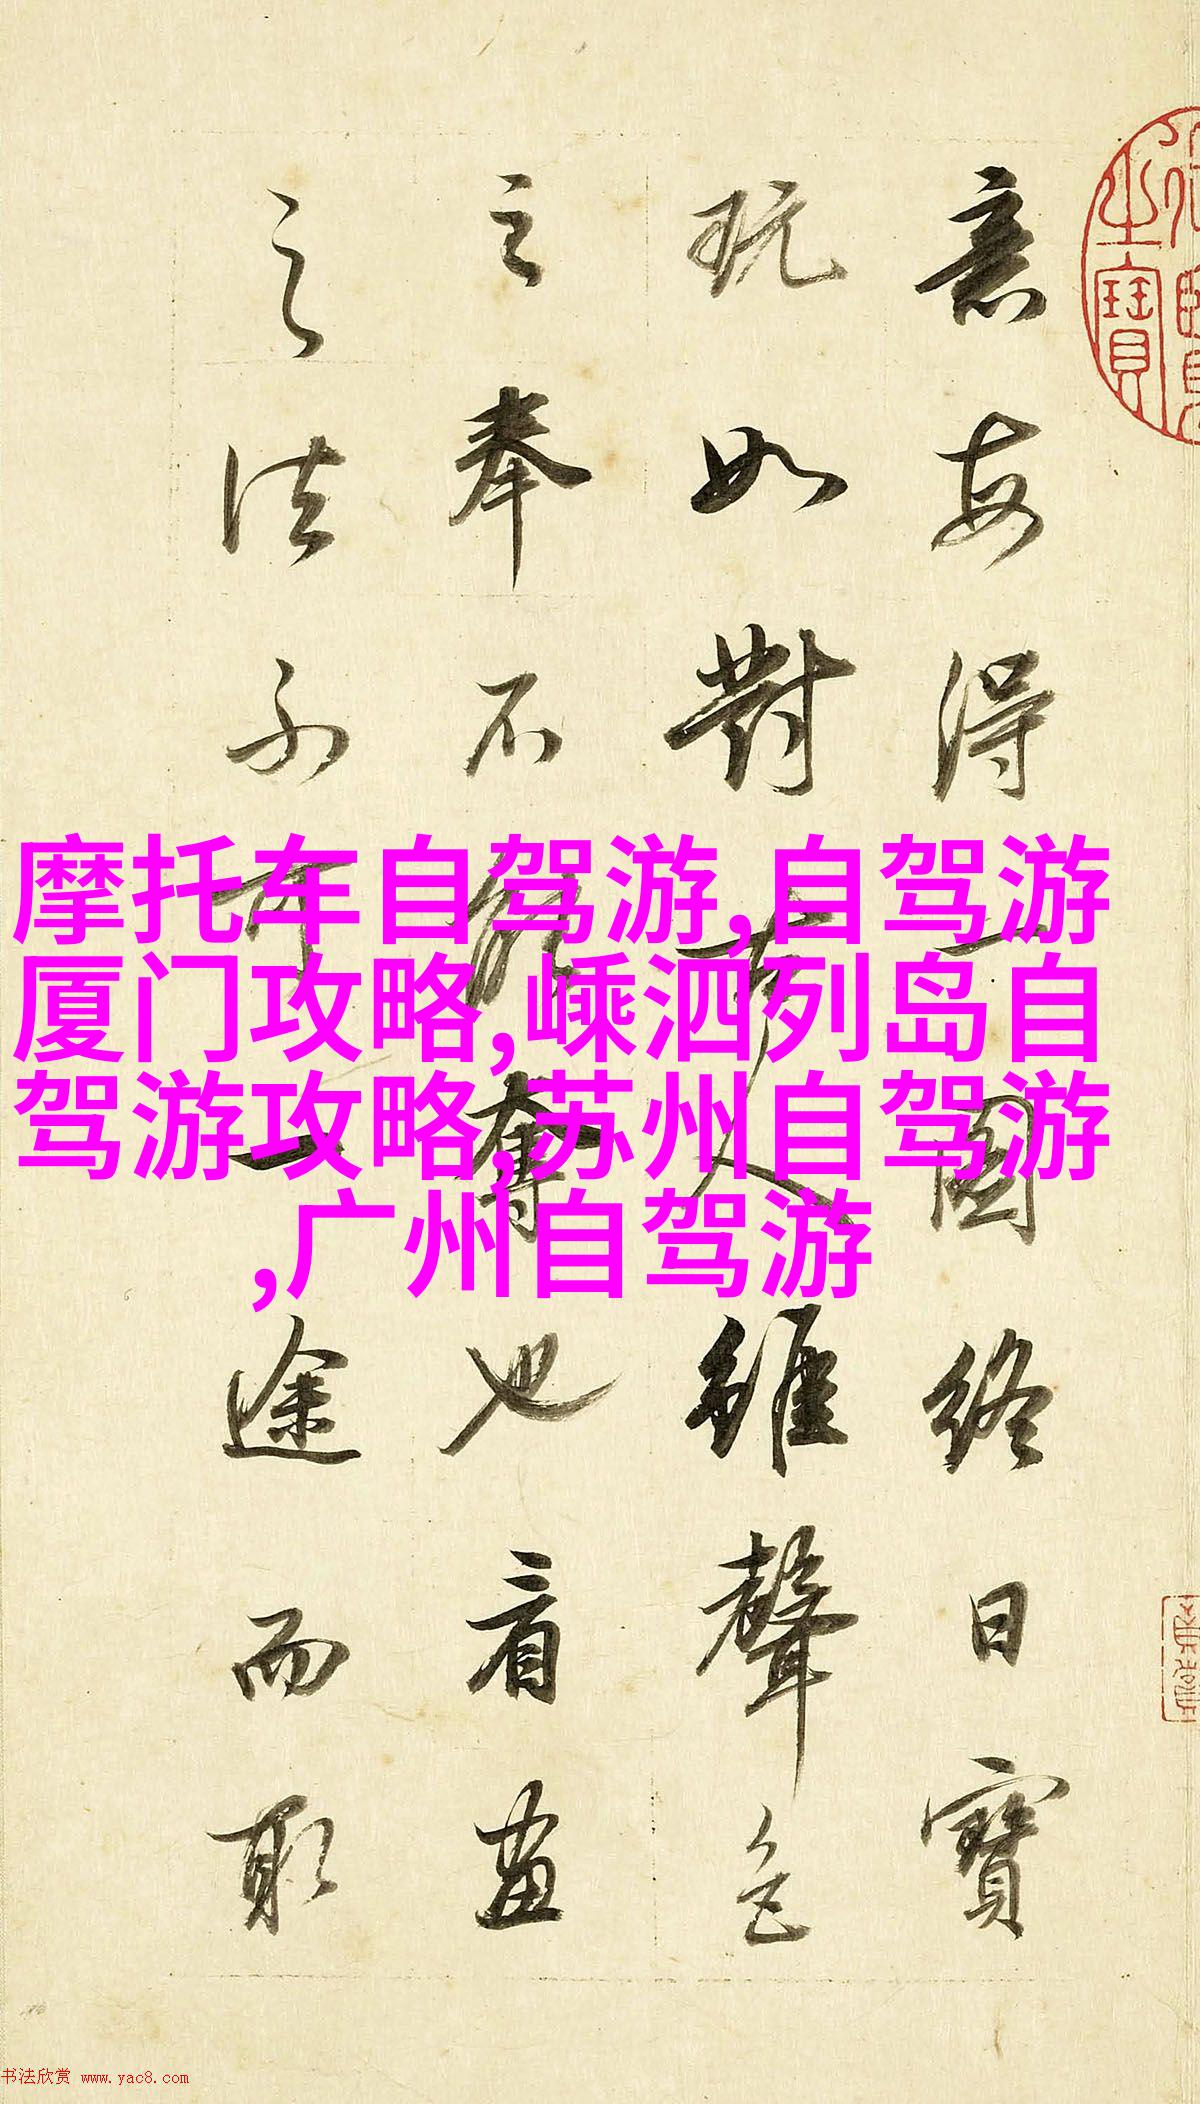 意每得一圖終日寶
玩如對古人雖聲色
之奉不能奪也看畫
之法不可一途而取
摩托车自驾游,自驾游
厦门攻略,嵊泗列岛自
驾游攻略,苏州自驾游
,广州自驾游
之寶
书法欣赏 www.yac8.com